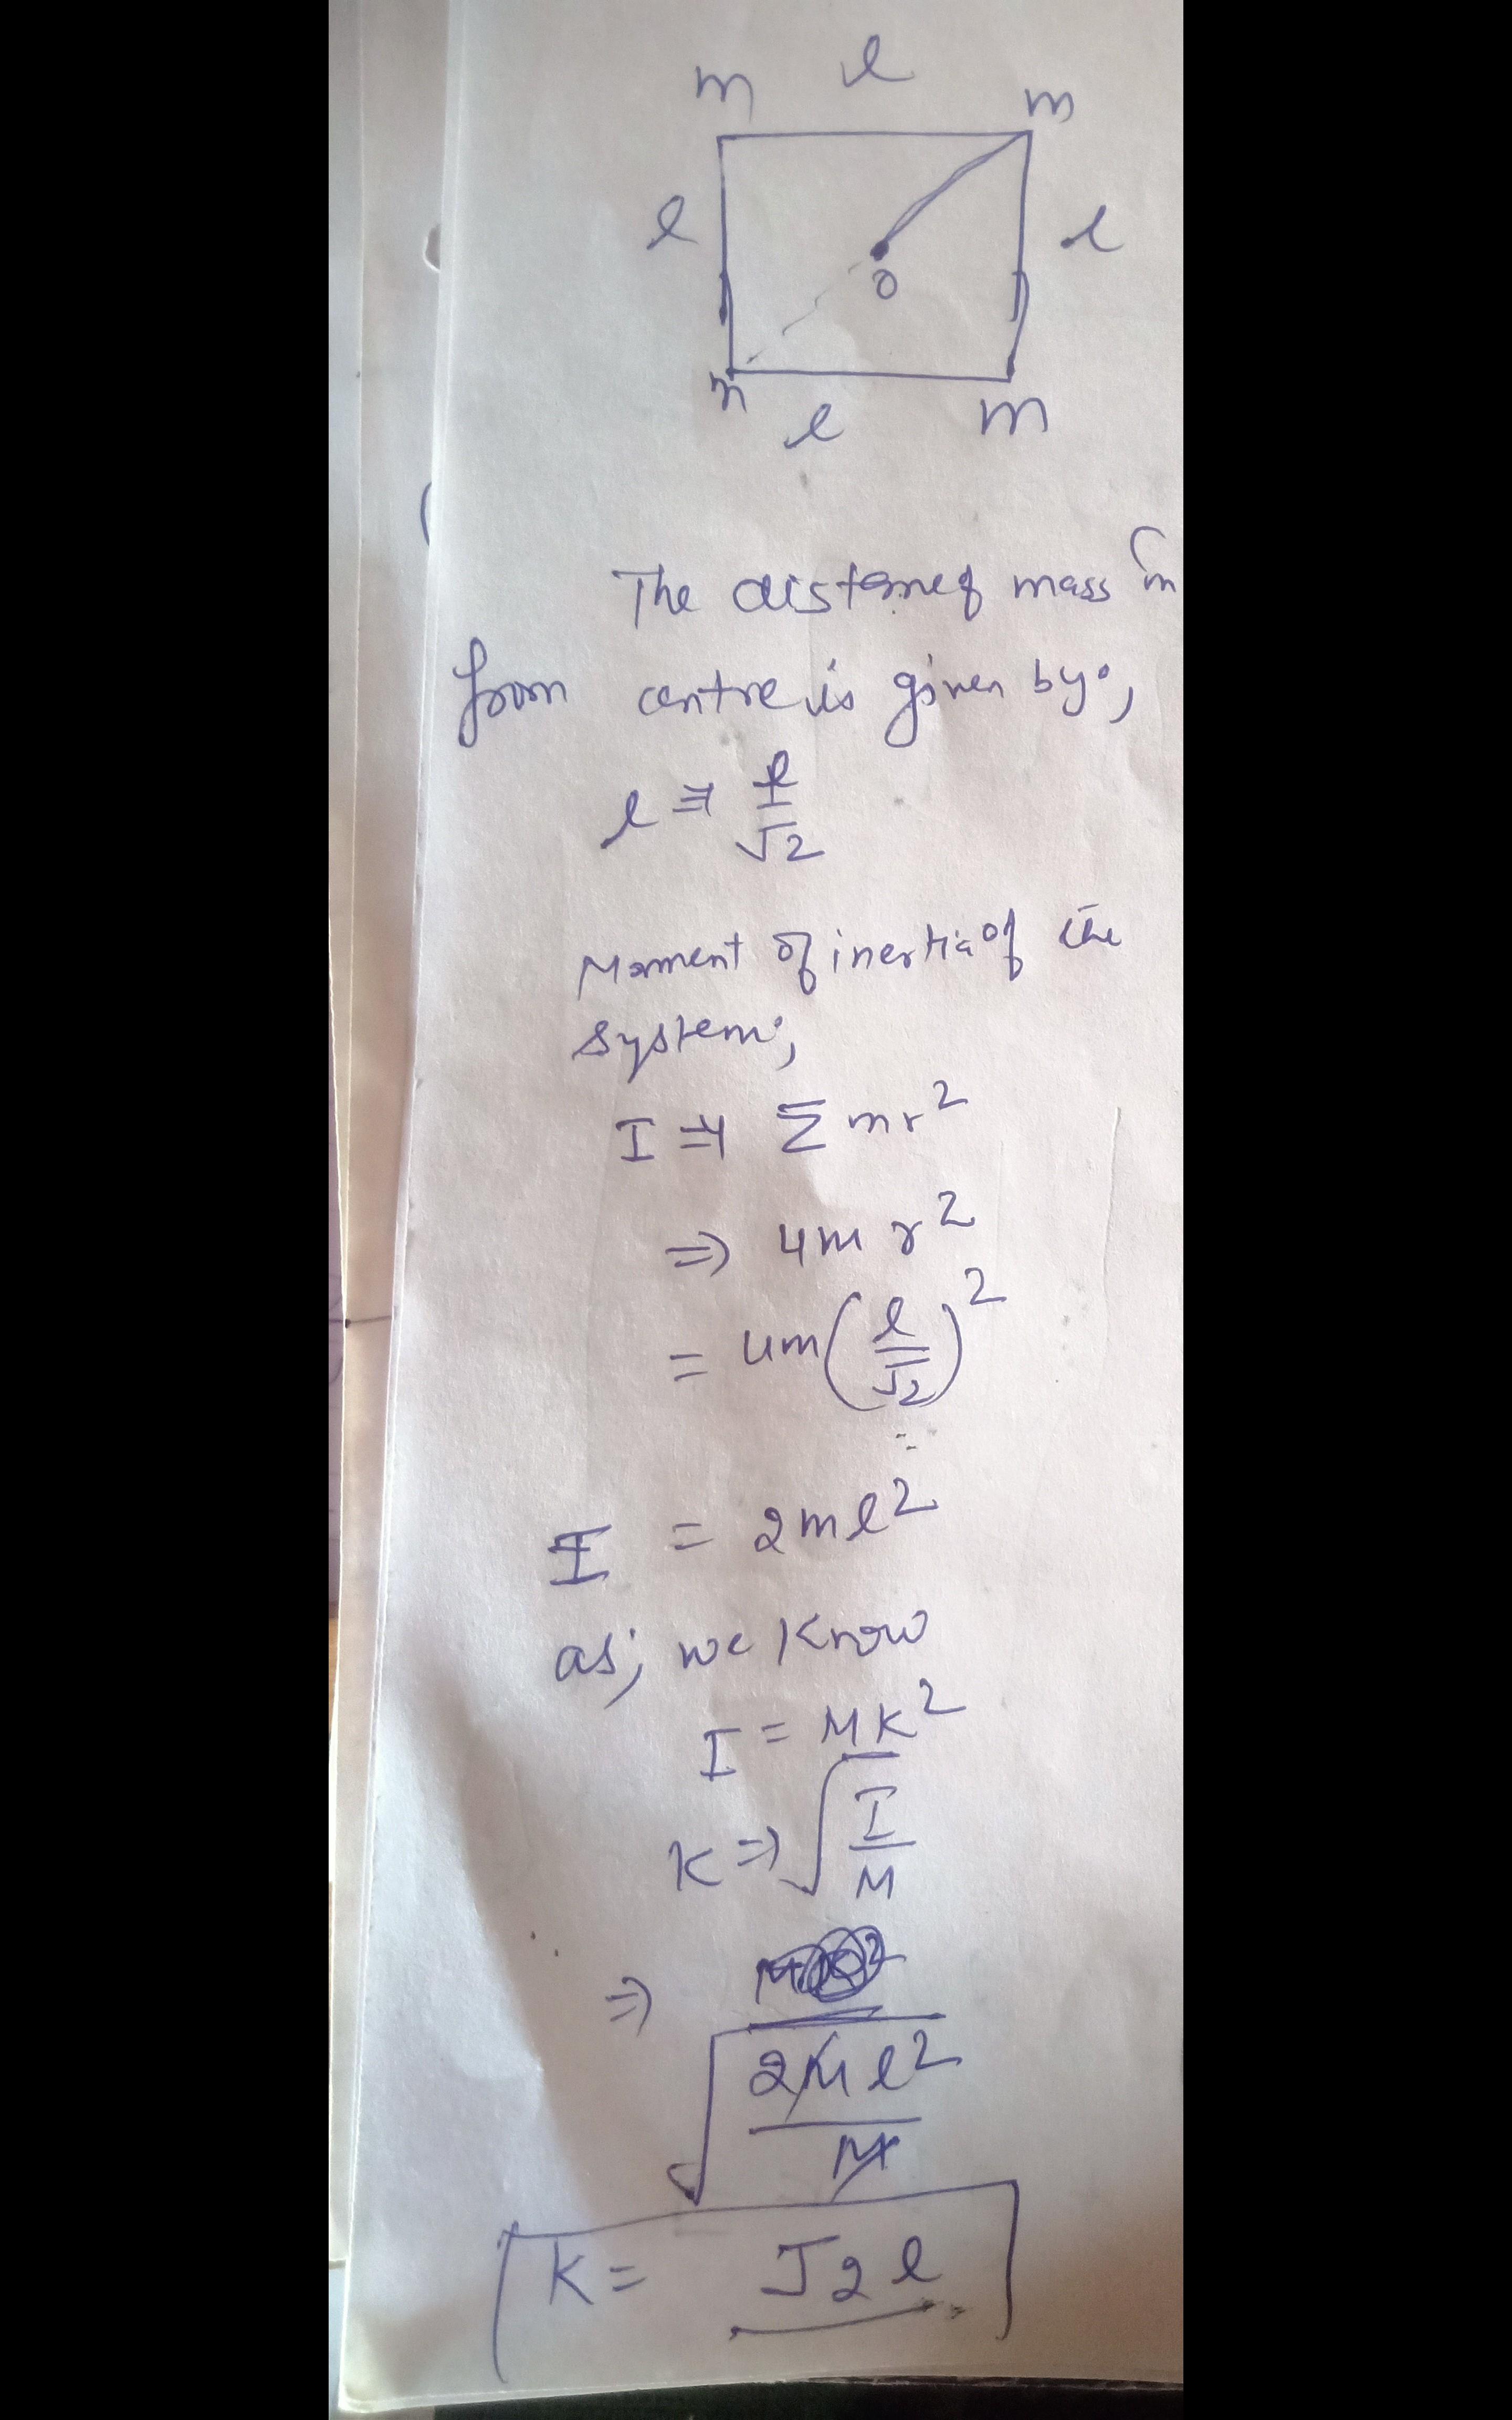 m l m
l l
o
n l m
The distance of mass m
from centre is given by;
l ⇒ l/√2
Moment of inertia of the
system;
I ⇒ Σmr²
⇒ 4mr²
= 4m(l/√2)²
I = 2ml²
as; we know
I = MK²
K ⇒ √(I/M)
⇒ √(2Ml²/M)
K = √2 l